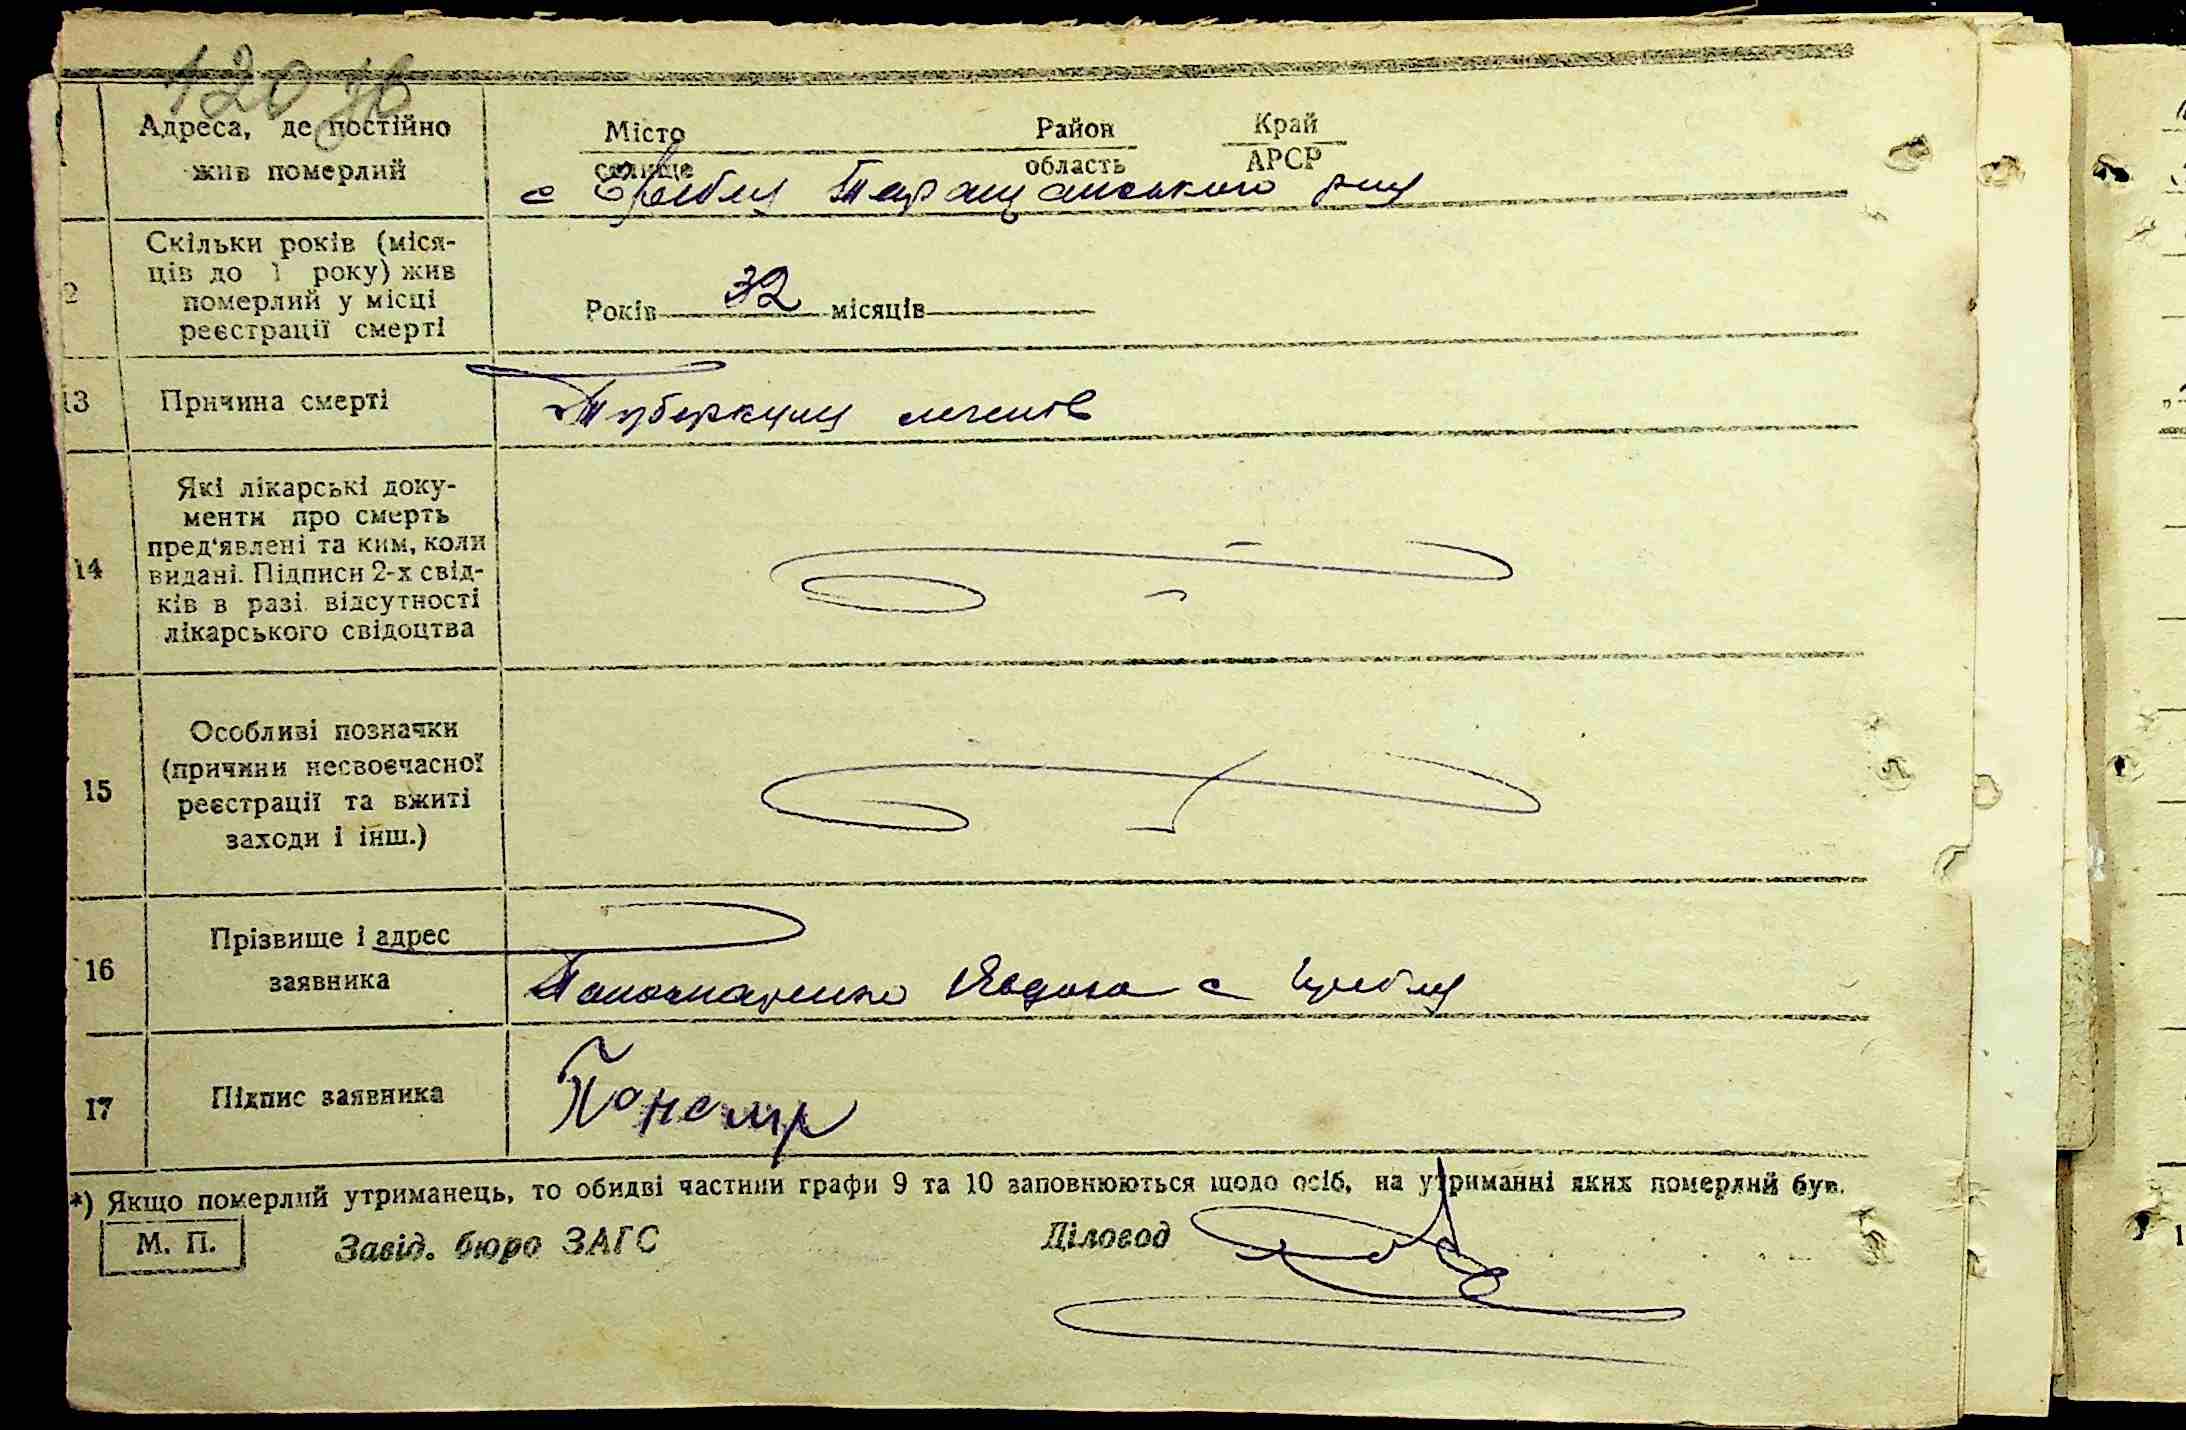 120 зв
Адреса, де постійно
жив померлий
Місто Район Край
селище область АРСР
с Гребля Таращанського р-ну
2
Скільки років (міся-
ців до 1 року) жив
померлий у місці
реєстрації смерті
Років 32 місяців
13
Причина смерті
Туберкульоз легенів
14
Які лікарські доку-
менти про смерть
пред'явлені та ким, коли
видані. Підписи 2-х свід-
ків в разі відсутності
лікарського свідоцтва
15
Особливі позначки
(причини несвоєчасної
реєстрації та вжиті
заходи і інш.)
16
Прізвище і адрес
заявника
Пономаренко Явдоха с Гребля
17
Підпис заявника
Пономр
*) Якщо померлий утриманець, то обидві частини графи 9 та 10 заповнюються щодо осіб, на утриманні яких померлий був.
М. П. Завід. бюро ЗАГС Діловод